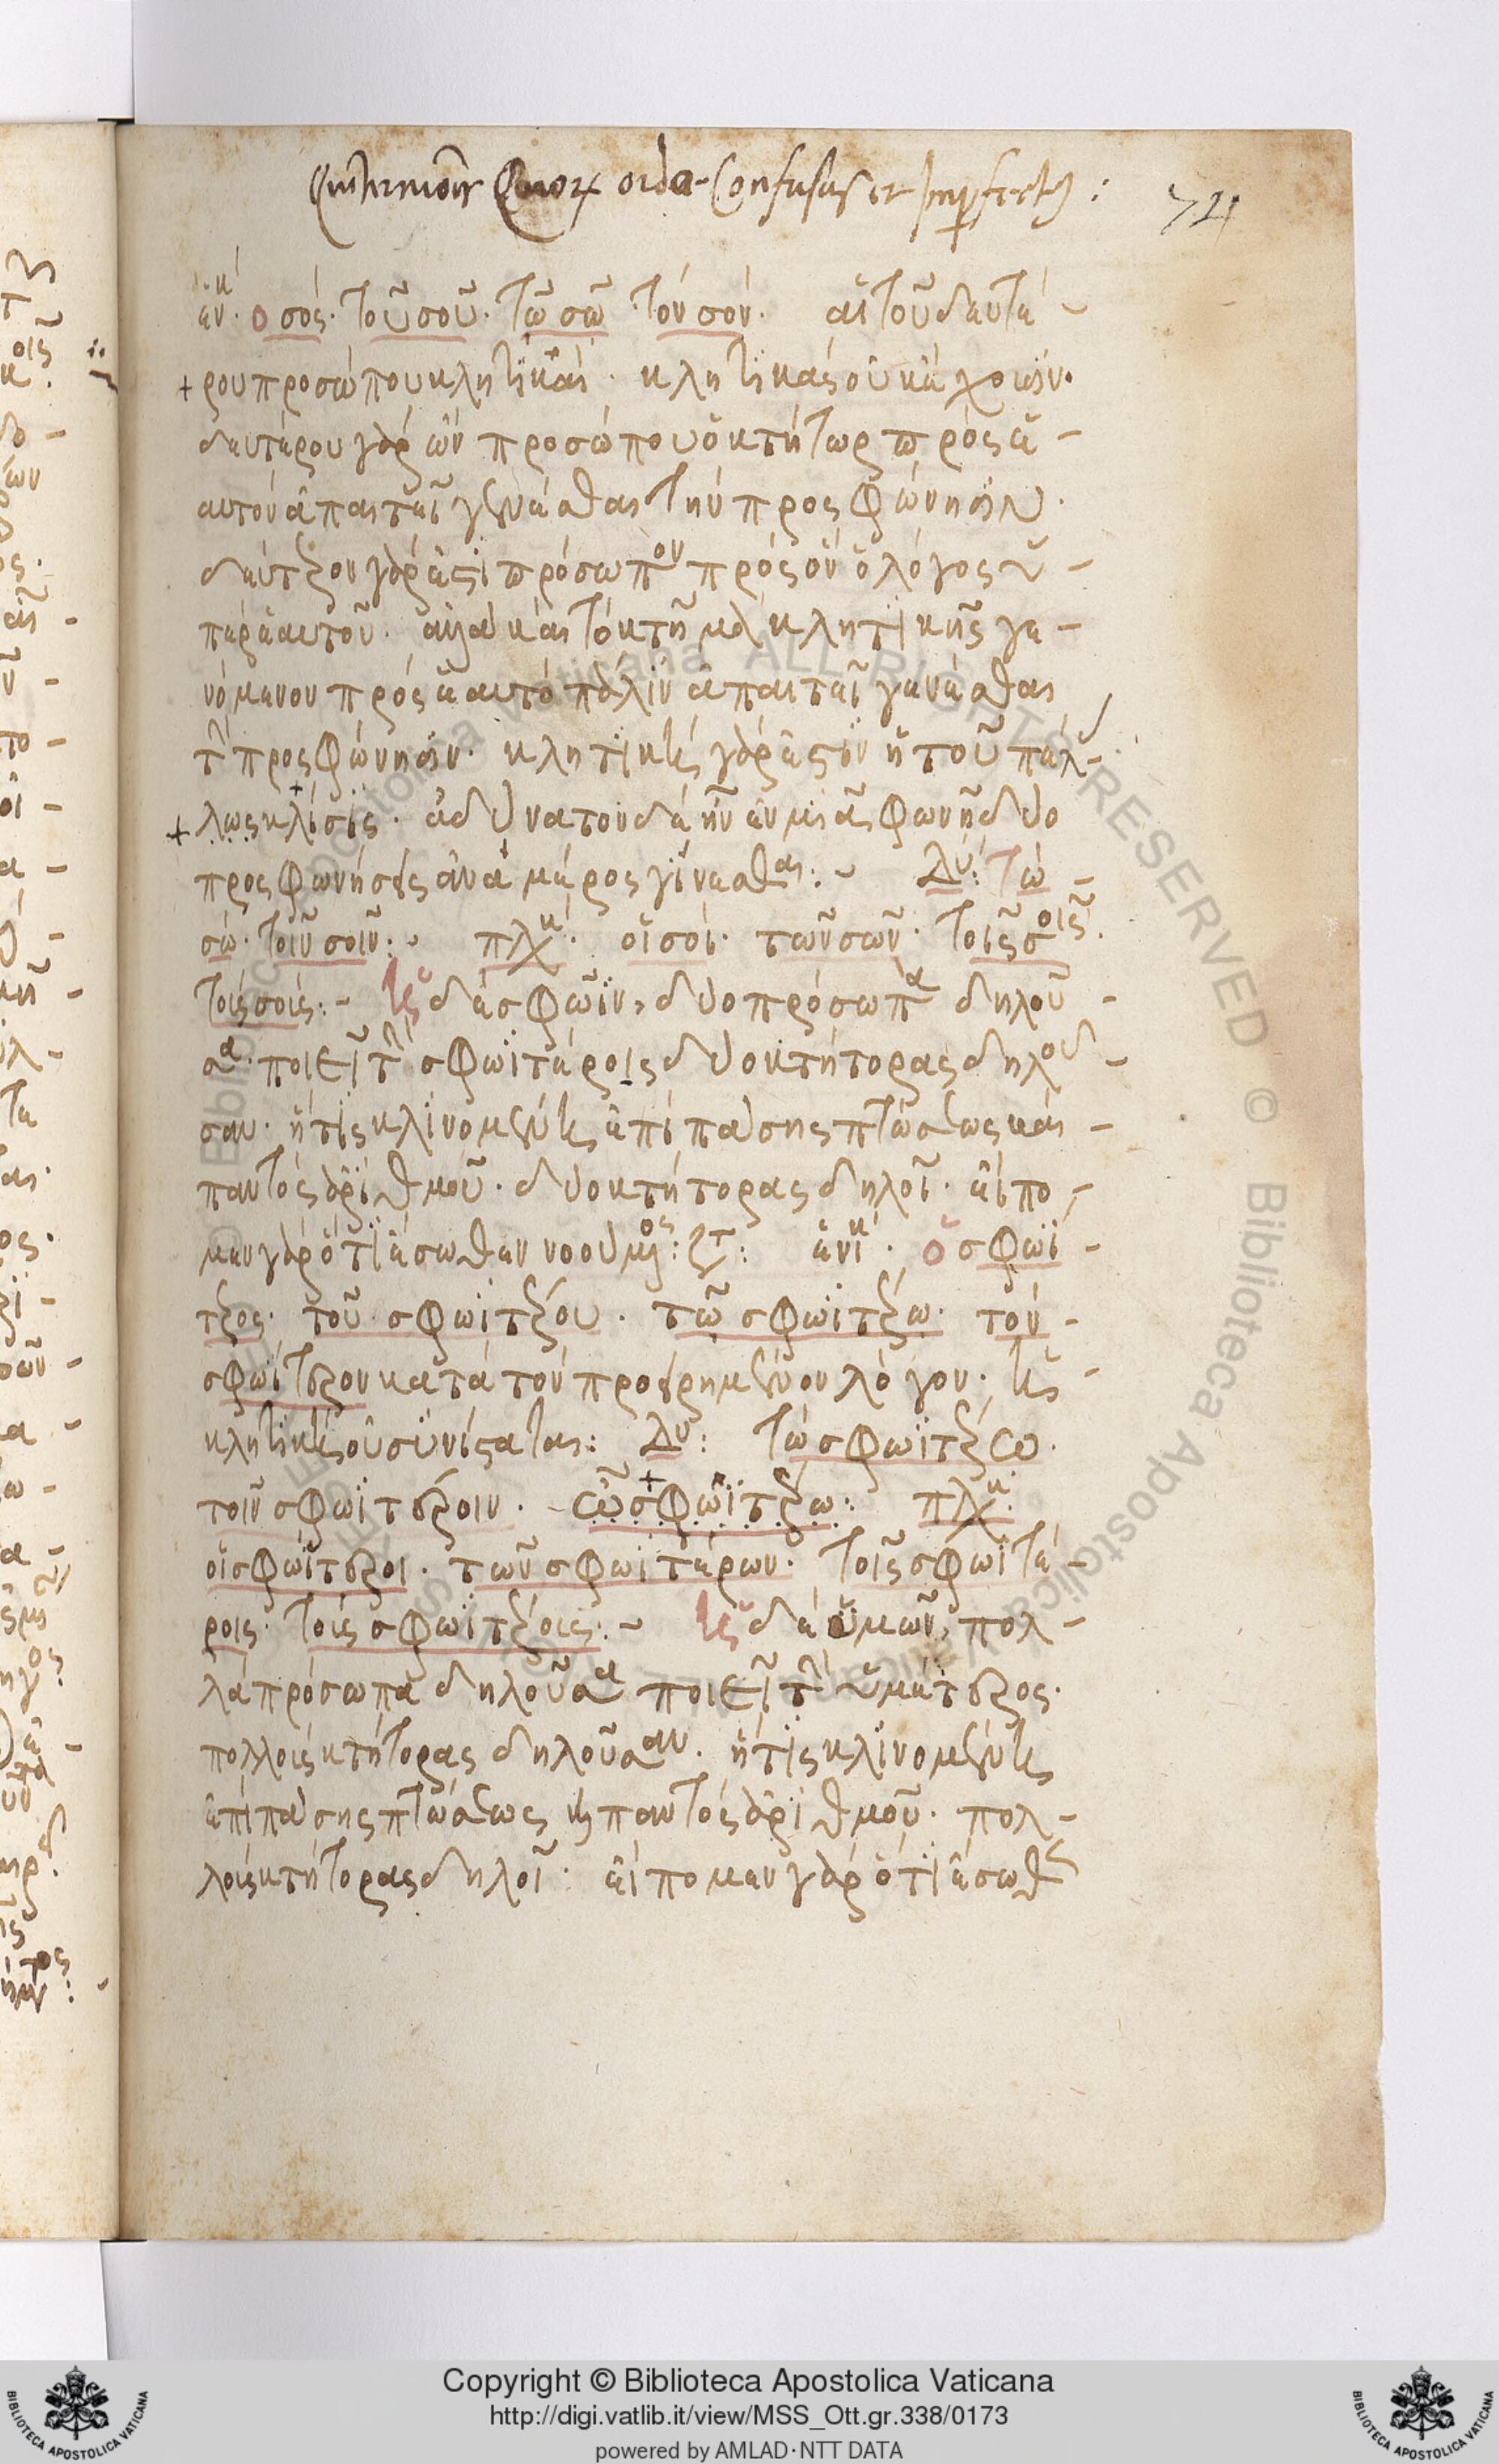 ἑνικ. ὁ σός. τοῦ σοῦ. τῷ σῷ. τὸν σόν. αἱ τοῦ δευτέ-
ρου προσώπου κλητικαὶ. κλητικὰς οὐκ ἔχουσιν.
δευτέρου γὰρ ὢν προσώπου ὁ κτήτωρ πρὸς ἑ-
αυτὸν ἀπαιτεῖ γενέσθαι τὴν προσφώνησιν.
δεύτερον γάρ ἐστι πρόσωπον πρὸς ὃν ὁ λόγος
παρ' ἑαυτοῦ. καὶ τὸ κτῆμα κλητικῆς γε-
νόμενον πρὸς ἑαυτὸ πάλιν ἀπαιτεῖ γενέσθαι
τὴν προσφώνησιν. κλητικῆς γάρ ἐστιν ἡ τοῦ πάλ-
λως κλίσις. ἀδύνατον δὲ ἦν ἐν μιᾷ φωνῇ δύο
προσφωνήσεις ἀνὰ μέρος γίνεσθαι: Δυ: τὼ
σώ. τοῖν σοῖν: πλκ. οἱ σοί. τῶν σῶν. τοῖς σοῖς.
τοὺς σούς: ἡ δὲ σφῶϊν, δύο πρόσωπα δηλοῦ-
σα. ποιεῖ τὴν σφωΐτερος δύο κτήτορας δηλοῦ-
σαν. ἥτις κλινομένη ἐπὶ πάσης πτώσεως καὶ
παντὸς ἀριθμοῦ. δύο κτήτορας δηλοῖ. εἴπο-
μεν γὰρ ὅτι ἔσωθεν νοοῦμεν: ἑνικ. ὁ σφωΐ-
τερος. τοῦ σφωϊτέρου. τῷ σφωϊτέρῳ. τὸν
σφωΐτερον κατὰ τὸν προειρημένον λόγον. ἡ
κλητικὴ οὐ συνίσταται: Δυ: τὼ σφωϊτέρω.
τοῖν σφωϊτέροιν. ὦ σφωϊτέρω: πλκ.
οἱ σφωΐτεροι. τῶν σφωϊτέρων. τοῖς σφωϊτέ-
ροις. τοὺς σφωϊτέρους: ἡ δὲ ὑμῶν, πολ-
λὰ πρόσωπα δηλοῦσα ποιεῖ τὴν ὑμέτερος.
πολλοὺς κτήτορας δηλοῦσαν. ἥτις κλινομένη
ἐπὶ πάσης πτώσεως καὶ παντὸς ἀριθμοῦ. πολ-
λοὺς κτήτορας δηλοῖ: εἴπομεν γὰρ ὅτι ἔσωθεν
Copyright © Biblioteca Apostolica Vaticana
http://digi.vatlib.it/view/MSS_Ott.gr.338/0173
powered by AMLAD·NTT DATA